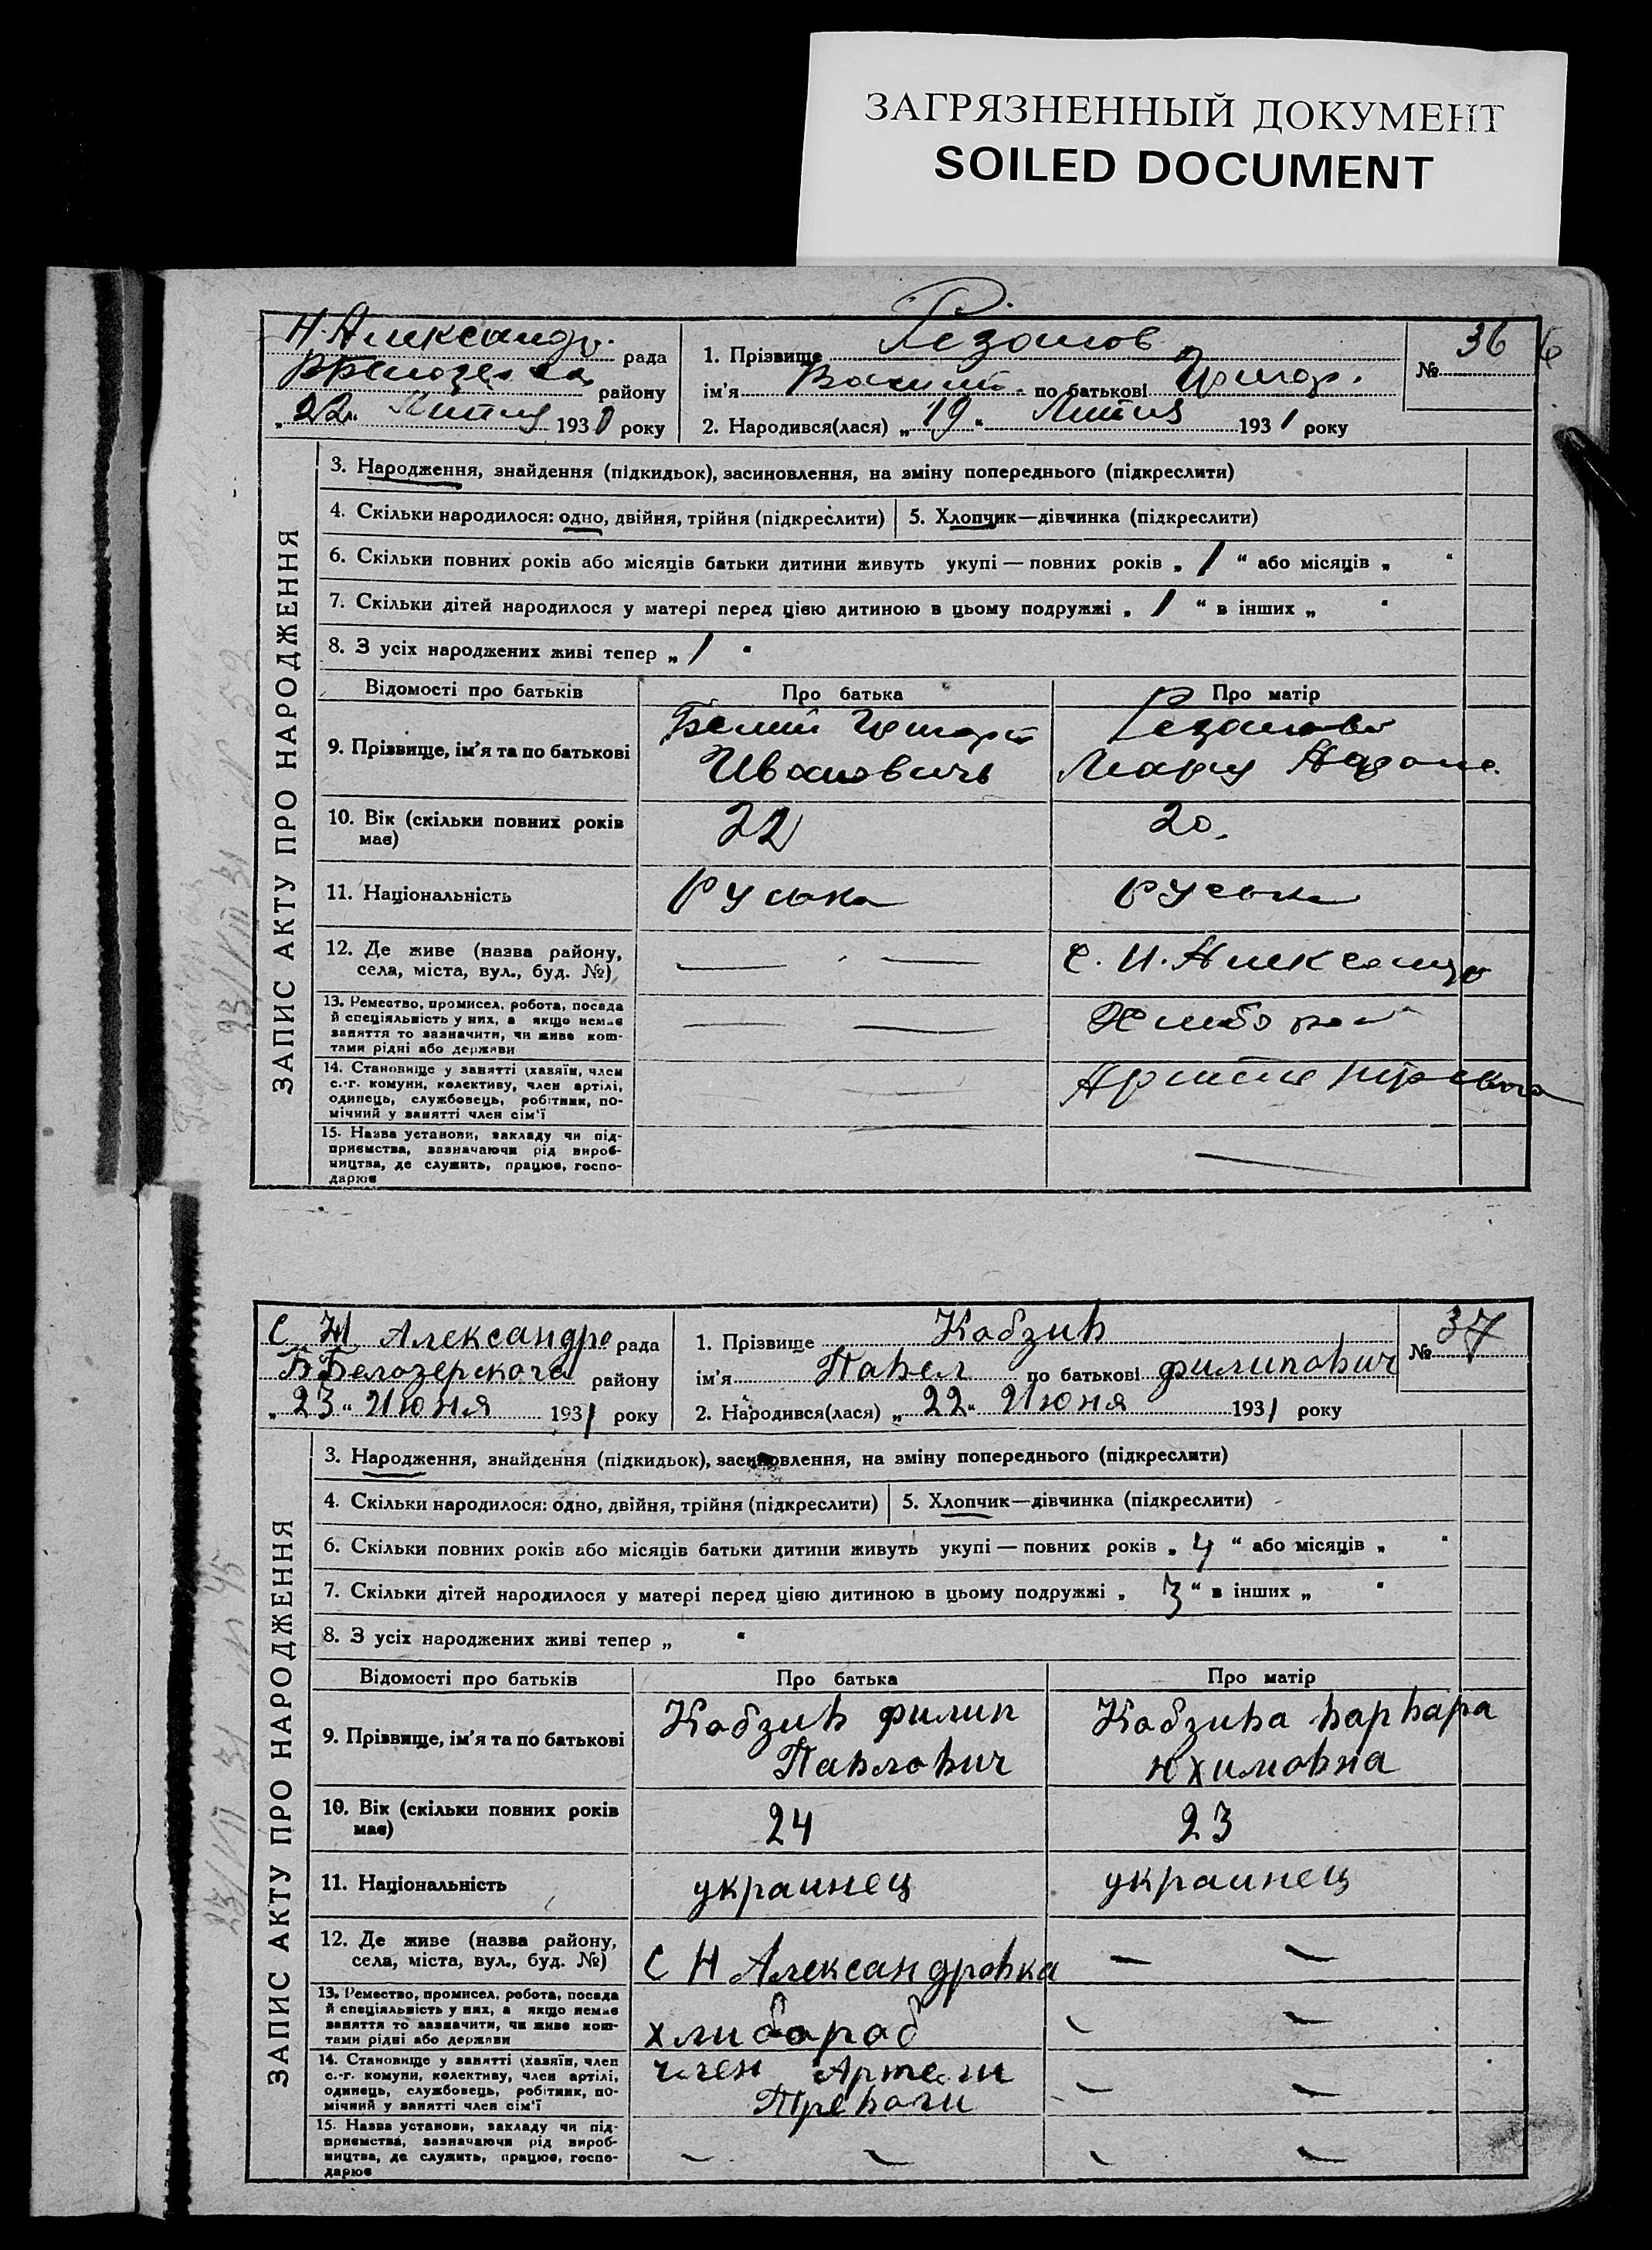 ЗАГРЯЗНЕННЫЙ ДОКУМЕНТ
SOILED DOCUMENT
Н. Александр. рада
району
"22" Липня 1931 року
1. Прізвище Резанов
ім'я по батькові Григор.
2. Народився(лася) „19" Липня 1931 року
№ 36
ЗАПИС АКТУ ПРО НАРОДЖЕННЯ
3. Народження, знайдення (підкидьок), засиновлення, на зміну попереднього (підкреслити)
4. Скільки народилося: одно, двійня, трійня (підкреслити)
5. Хлопчик—дівчинка (підкреслити)
6. Скільки повних років або місяців батьки дитини живуть укупі — повних років „ 1 " або місяців „ "
7. Скільки дітей народилося у матері перед цією дитиною в цьому подружжі „ 1 " в інших „ "
8. З усіх народжених живі тепер „ 1 "
Відомості про батьків
Про батька
Про матір
9. Прізвище, ім'я та по батькові
Белий Григорий
Иванович
Резанова
Мария
10. Вік (скільки повних років має)
22
20
11. Національність
Руська
Руська
12. Де живе (назва району, села, міста, вул., буд. №)
С. Н. Александро
13. Ремество, промисел, робота, посада й спеціяльність у них, а якщо немає заняття то зазначити, чи живе коштами рідні або держави
14. Становище у занятті (хазяїн, член с.-г. комуни, колективу, член артілі, одинець, службовець, робітник, помічний у занятті член сім'ї
15. Назва установи, закладу чи підприємства, зазначаючи рід виробництва, де служить, працює, господарює
С Н Александро рада
Б Белозерского району
"23" Июня 1931 року
1. Прізвище Кобзив
ім'я Павел по батькові Филипович
2. Народився(лася) „22" Июня 1931 року
№ 37
ЗАПИС АКТУ ПРО НАРОДЖЕННЯ
3. Народження, знайдення (підкидьок), засиновлення, на зміну попереднього (підкреслити)
4. Скільки народилося: одно, двійня, трійня (підкреслити)
5. Хлопчик—дівчинка (підкреслити)
6. Скільки повних років або місяців батьки дитини живуть укупі — повних років „ 4 " або місяців „ "
7. Скільки дітей народилося у матері перед цією дитиною в цьому подружжі „ 3 " в інших „ "
8. З усіх народжених живі тепер „ "
Відомості про батьків
Про батька
Про матір
9. Прізвище, ім'я та по батькові
Кобзив Филип
Павлович
Кобзива Варвара
Юхимовна
10. Вік (скільки повних років має)
24
23
11. Національність
украинец
украинец
12. Де живе (назва району, села, міста, вул., буд. №)
С Н Александровка
13. Ремество, промисел, робота, посада й спеціяльність у них, а якщо немає заняття то зазначити, чи живе коштами рідні або держави
хлибороб
14. Становище у занятті (хазяїн, член с.-г. комуни, колективу, член артілі, одинець, службовець, робітник, помічний у занятті член сім'ї
член Артели
Тревоги
15. Назва установи, закладу чи підприємства, зазначаючи рід виробництва, де служить, працює, господарює